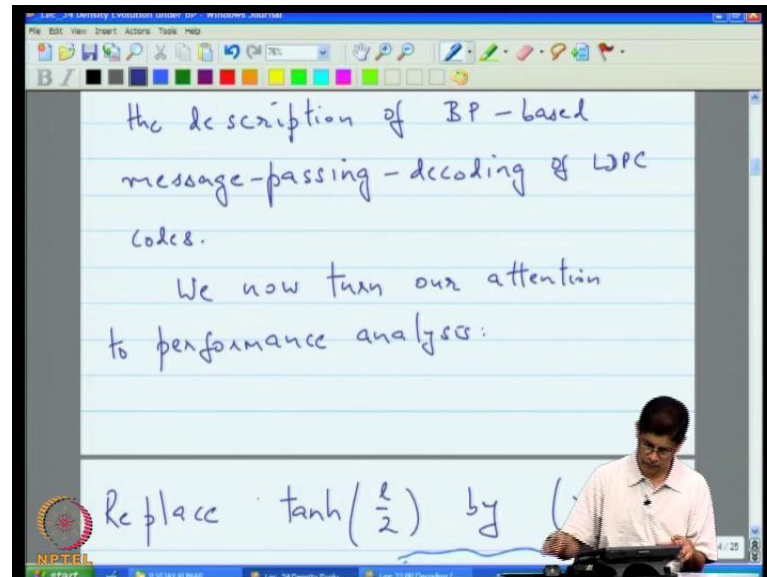 Lec_34 Density Evolution under BP - Windows Journal
File Edit View Insert Actions Tools Help
78%
B I
the description of BP-based
message-passing-decoding of LDPC
codes.
We now turn our attention
to performance analysis:
Replace tanh(l/2) by (
4 / 25
NPTEL
start